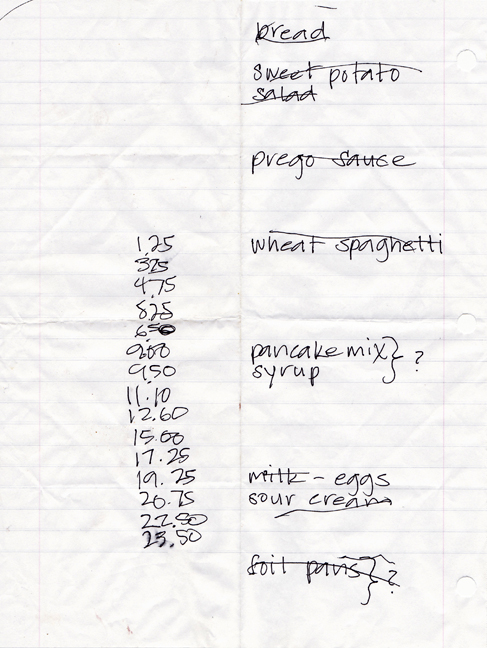 bread
sweet potato
salad
prego sauce
wheat spaghetti
1.25
3.25
4.75
8.25
6.50
9.00
9.50
11.10
12.60
15.00
17.25
19.25
20.75
22.50
25.50
pancake mix } ?
syrup
milk - eggs
sour cream
foil pans } ?